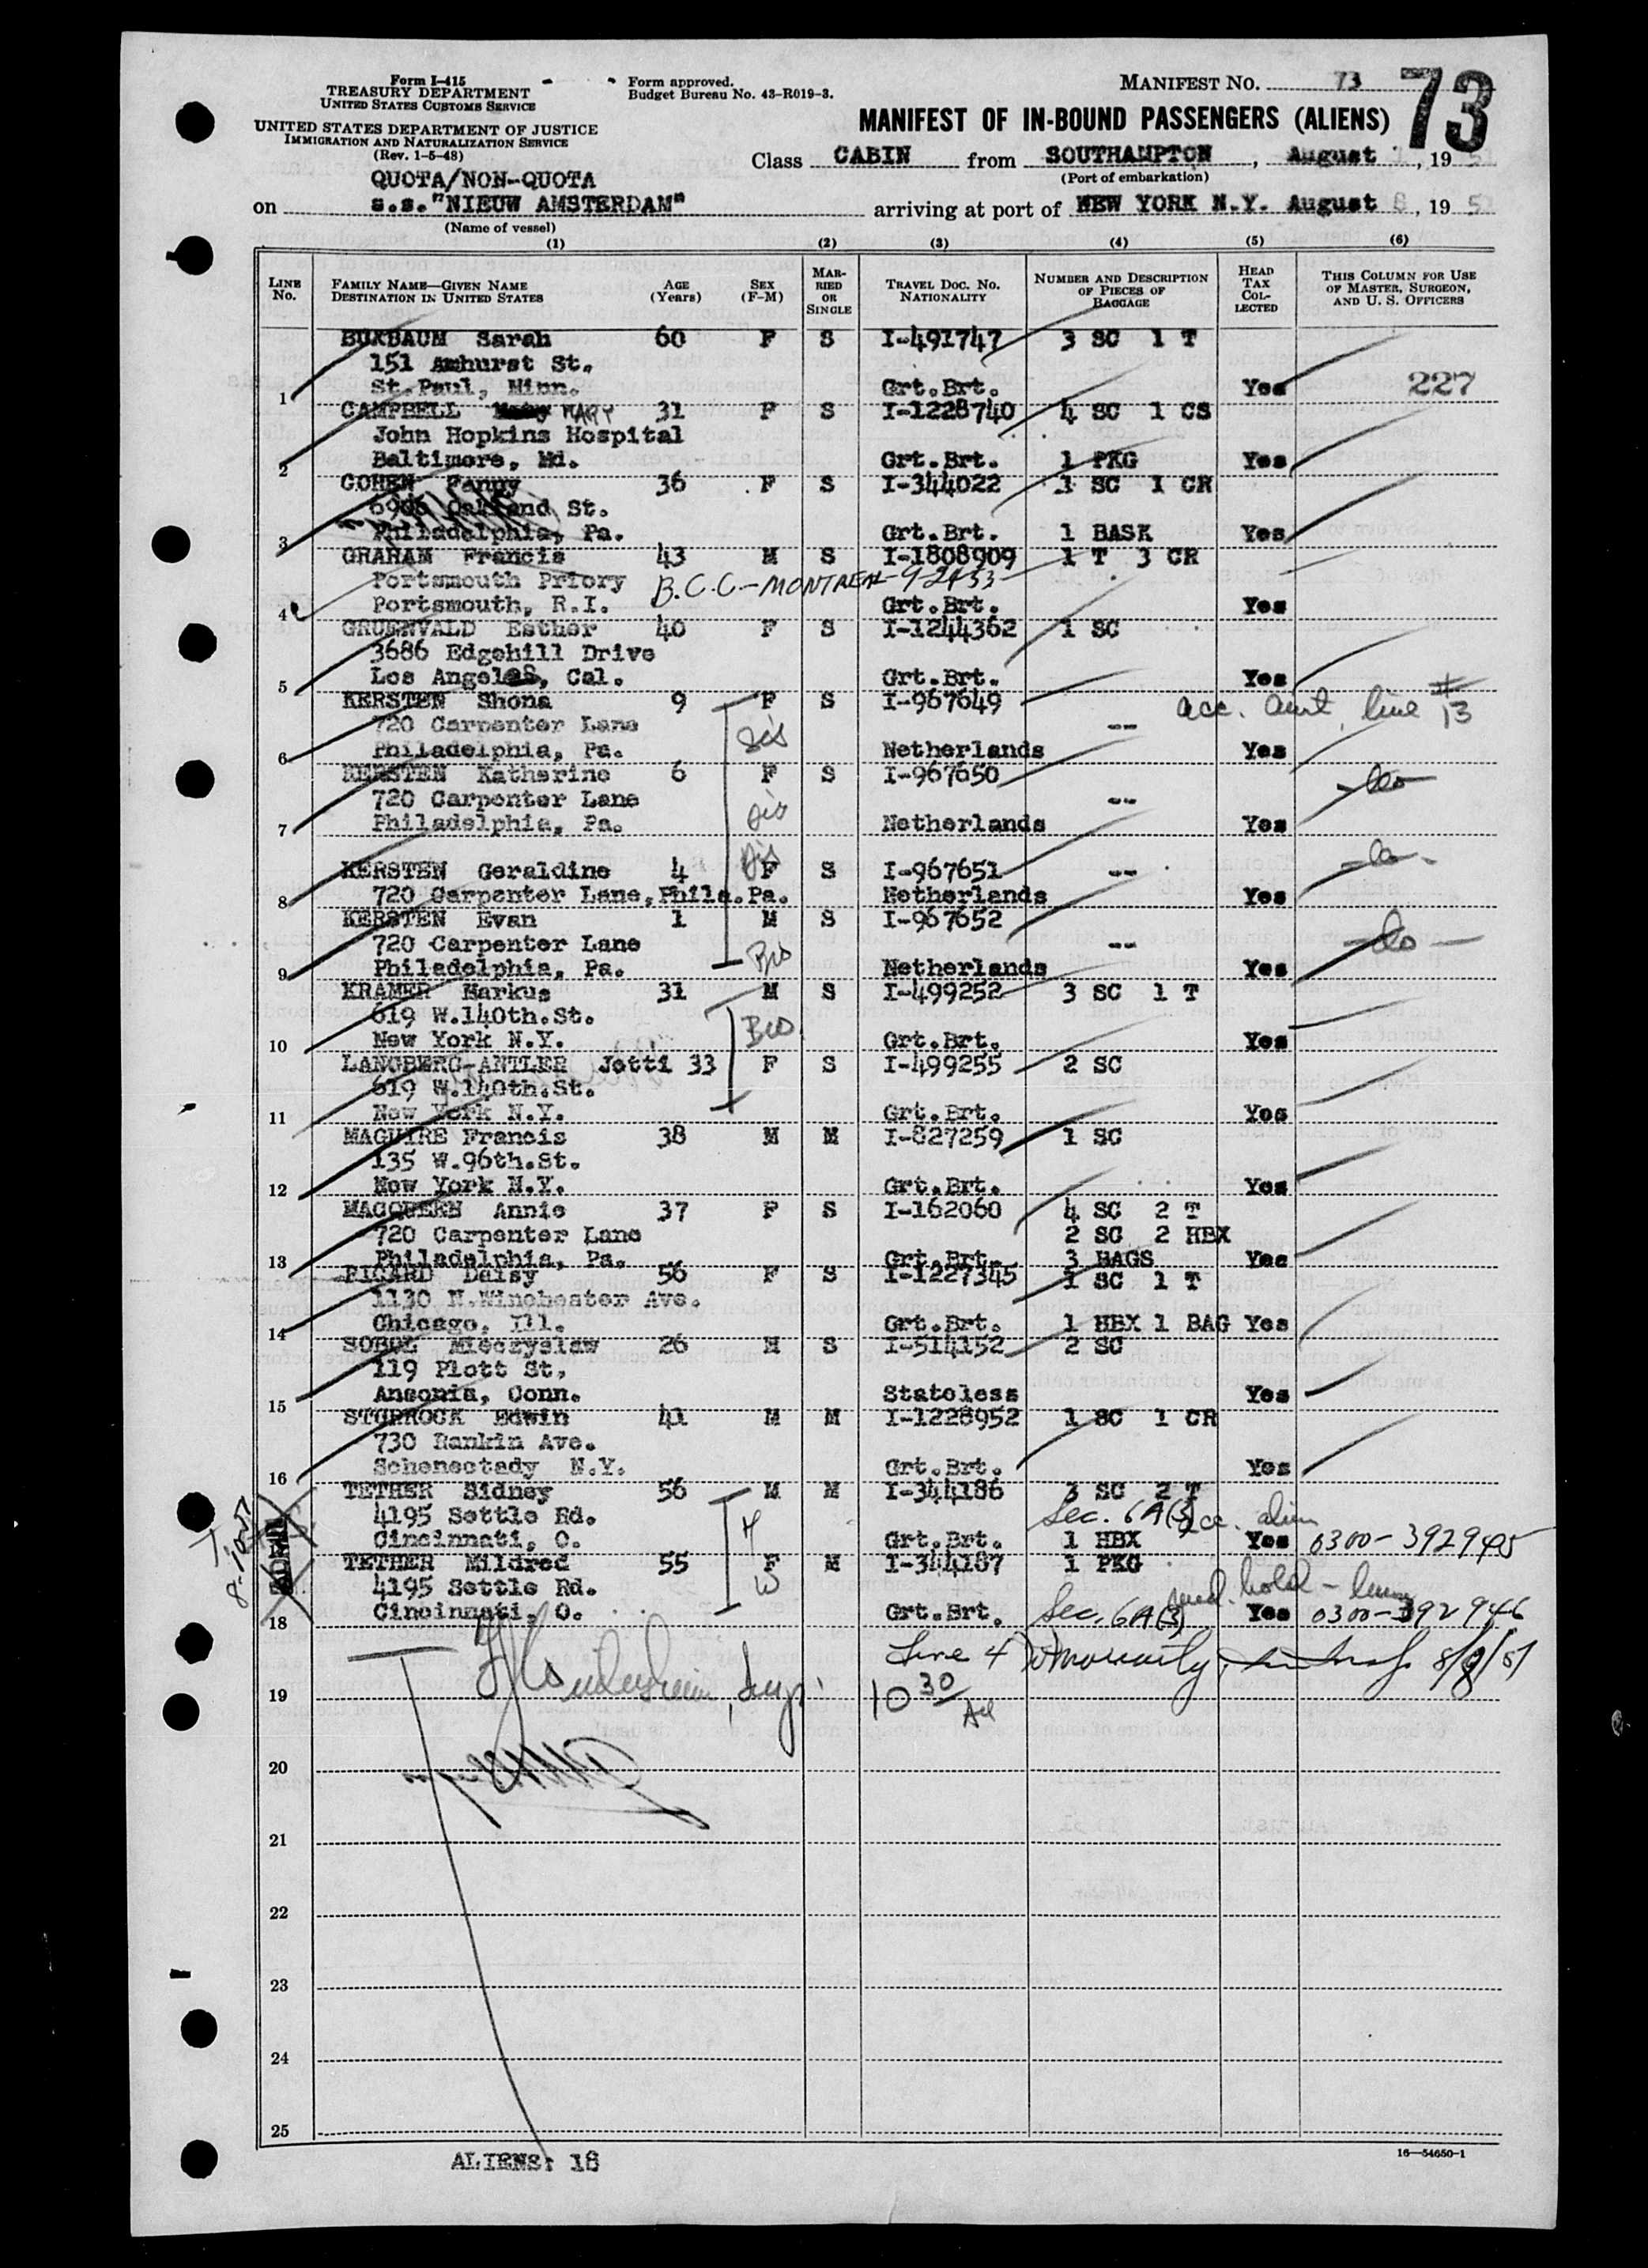 Form I-415
TREASURY DEPARTMENT
UNITED STATES CUSTOMS SERVICE
UNITED STATES DEPARTMENT OF JUSTICE
IMMIGRATION AND NATURALIZATION SERVICE
(Rev. 1-5-48)
Form approved.
Budget Bureau No. 43-R019-3.
MANIFEST NO. 73
73
MANIFEST OF IN-BOUND PASSENGERS (ALIENS)
Class CABIN from SOUTHAMPTON, August 1, 1951
(Port of embarkation)
QUOTA/NON-QUOTA
on s.s."NIEUW AMSTERDAM" arriving at port of NEW YORK N.Y. August 8, 1951
(Name of vessel)
(1) (2) (3) (4) (5) (6)
LINE No. FAMILY NAME—GIVEN NAME DESTINATION IN UNITED STATES AGE (Years) SEX (F-M) MARRIED OR SINGLE TRAVEL DOC. NO. NATIONALITY NUMBER AND DESCRIPTION OF PIECES OF BAGGAGE HEAD TAX COLLECTED THIS COLUMN FOR USE OF MASTER, SURGEON, AND U. S. OFFICERS
BUXBAUM Sarah 60 F S I-491747 3 SC 1 T
151 Amhurst St.
1 St.Paul, Minn. Grt.Brt. Yes 227
CAMPBELL MARY 31 F S I-1228740 4 SC 1 CS
John Hopkins Hospital
2 Baltimore, Md. Grt.Brt. 1 PKG Yes
COHEN Fanny 36 F S I-344022 1 SC 1 CR
Oakland St.
3 Philadelphia, Pa. Grt.Brt. 1 BASK Yes
GRAHAM Francis 43 M S I-1808909 1 T 3 CR
Portsmouth Priory B.C.C.-MONTREAL-9-24-53
4 Portsmouth, R.I. Grt.Brt. Yes
GRUENVALD Esther 40 F S I-1244362 1 SC
3686 Edgehill Drive
5 Los Angeles, Cal. Grt.Brt. Yes
KERSTEN Shona 9 F S I-967649 acc. aunt, line #13
720 Carpenter Lane Sis --
6 Philadelphia, Pa. Netherlands Yes
KERSTEN Katherine 6 F S I-967650 -do-
720 Carpenter Lane Sis --
7 Philadelphia, Pa. Netherlands Yes
KERSTEN Geraldine 4 Sis F S I-967651 -- -do-
8 720 Carpenter Lane,Phila.Pa. Netherlands Yes
KERSTEN Evan 1 M S I-967652
720 Carpenter Lane -- -do-
9 Philadelphia, Pa. Bro Netherlands Yes
KRAMER Markus 31 M S I-499252 3 SC 1 T
619 W.140th.St. Bro
10 New York N.Y. Grt.Brt. Yes
LANGBERG-ANTLER Jetti 33 F S I-499255 2 SC
619 W.140th.St.
11 New York N.Y. Grt.Brt. Yes
MAGUIRE Francis 38 M M I-827259 1 SC
135 W.96th.St.
12 New York N.Y. Grt.Brt. Yes
MACQUEEN Annie 37 F S I-162060 4 SC 2 T
720 Carpenter Lane 2 SC 2 HBX
13 Philadelphia, Pa. Grt.Brt. 3 BAGS Yes
PICARD Daisy 56 F S I-1227345 1 SC 1 T
1130 N.Winchester Ave.
14 Chicago, Ill. Grt.Brt. 1 HBX 1 BAG Yes
SOBOL Mieczyslaw 26 M S I-514152 2 SC
119 Plott St,
15 Ansonia, Conn. Stateless Yes
STURROCK Edwin 41 M M I-1228952 1 SC 1 CR
730 Rankin Ave.
16 Schenectady N.Y. Grt.Brt. Yes
TETHER Sidney 56 M M I-344186 3 SC 2 T
4195 Settle Rd. H Sec. 6A(3) acc. alien
Cincinnati, O. Grt.Brt. 1 HBX Yes 0300-392945
TETHER Mildred 55 F M I-344187 1 PKG
4195 Settle Rd. W med. hold
18 Cincinnati, O. Grt.Brt. Sec. 6A(3) Yes 0300-392946
Line 4 8/8/51
19 10 30
20
21
22
23
24
25
ALIENS: 18
16—54650-1